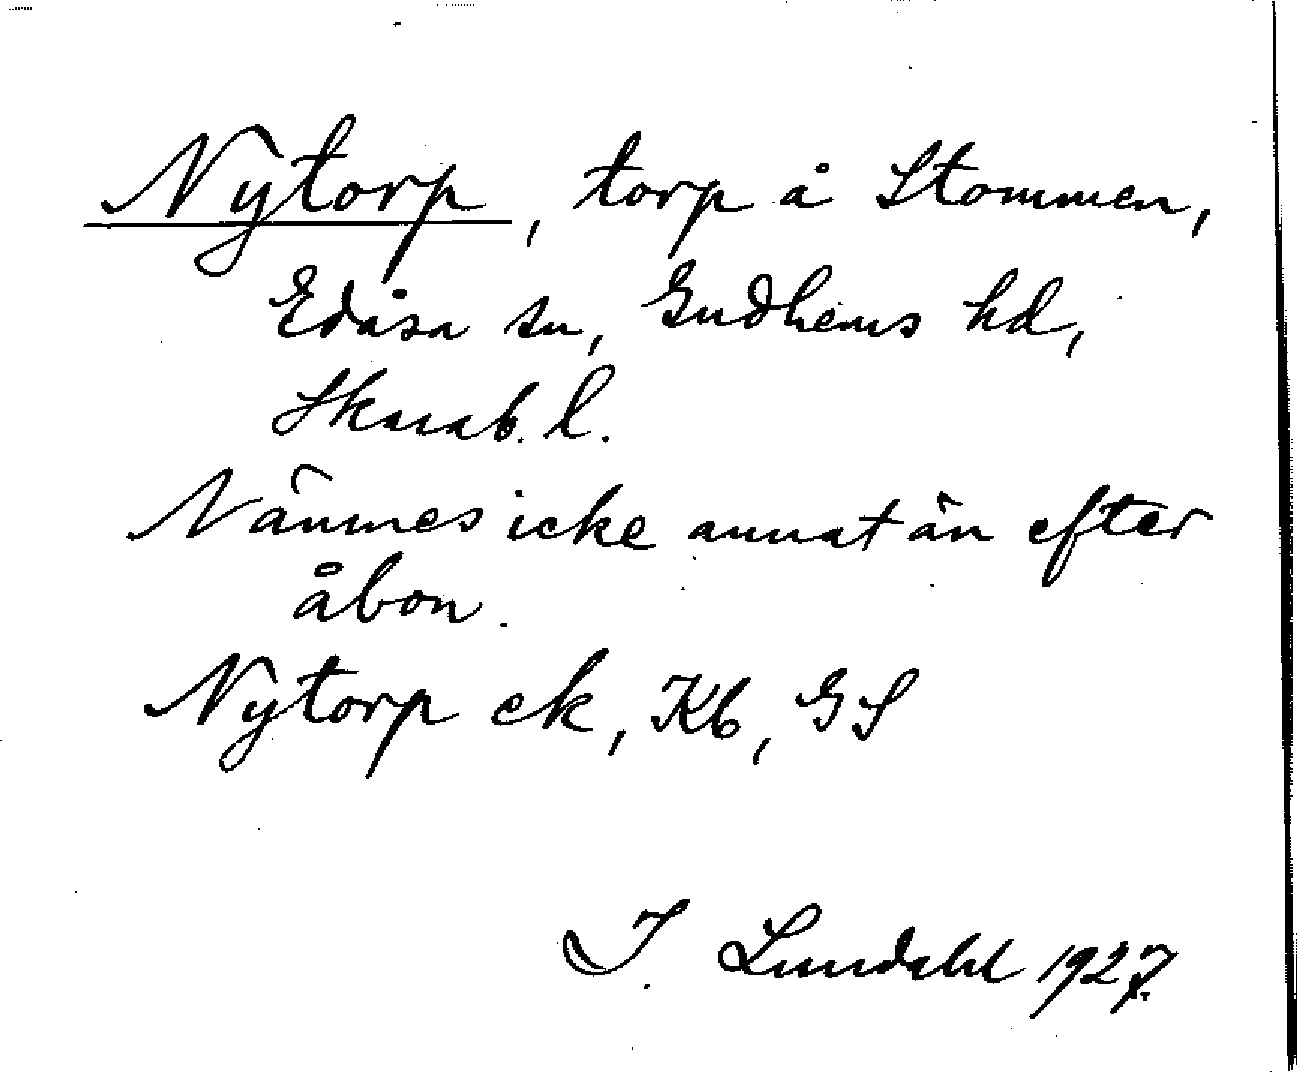 Nytorp, torp å Stommen,
Edåsa sn, Gudhems hd,
Skarab. l.
Nämnes icke annat än efter
åbon.
Nytorp ek, Kb, GS
I. Lundahl 1927.